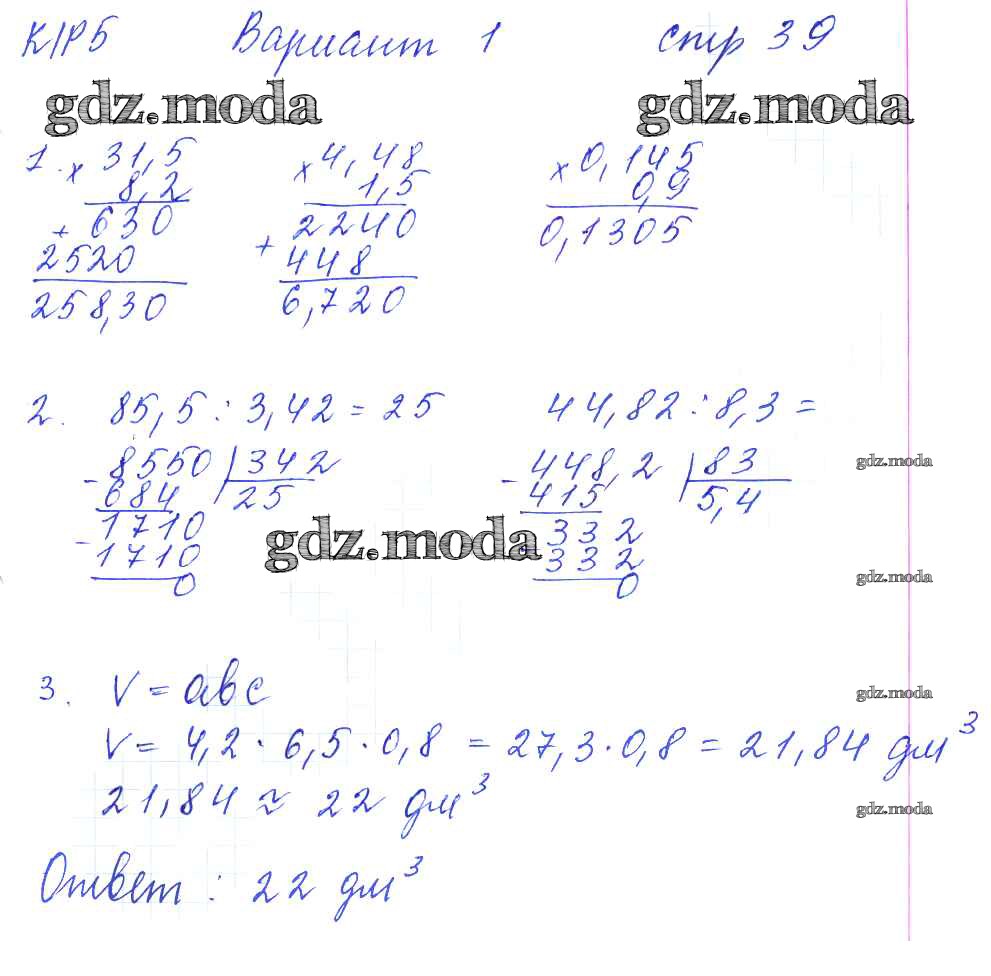 К/Р5 Вариант 1 стр 39
gdz.moda gdz.moda
1. × 31,5 × 4,48 × 0,145
8,2 1,5 0,9
+ 630 2240 0,1305
2520 + 448
258,30 6,720
2. 85,5 : 3,42 = 25 44,82 : 8,3 =
- 8550 | 342 - 448,2 | 83 gdz.moda
684 25 415 5,4
- 1710 gdz.moda 332
1710 332 gdz.moda
0 0
3. V = abc gdz.moda
V = 4,2 · 6,5 · 0,8 = 27,3 · 0,8 = 21,84 дм³
21,84 ≈ 22 дм³ gdz.moda
Ответ : 22 дм³